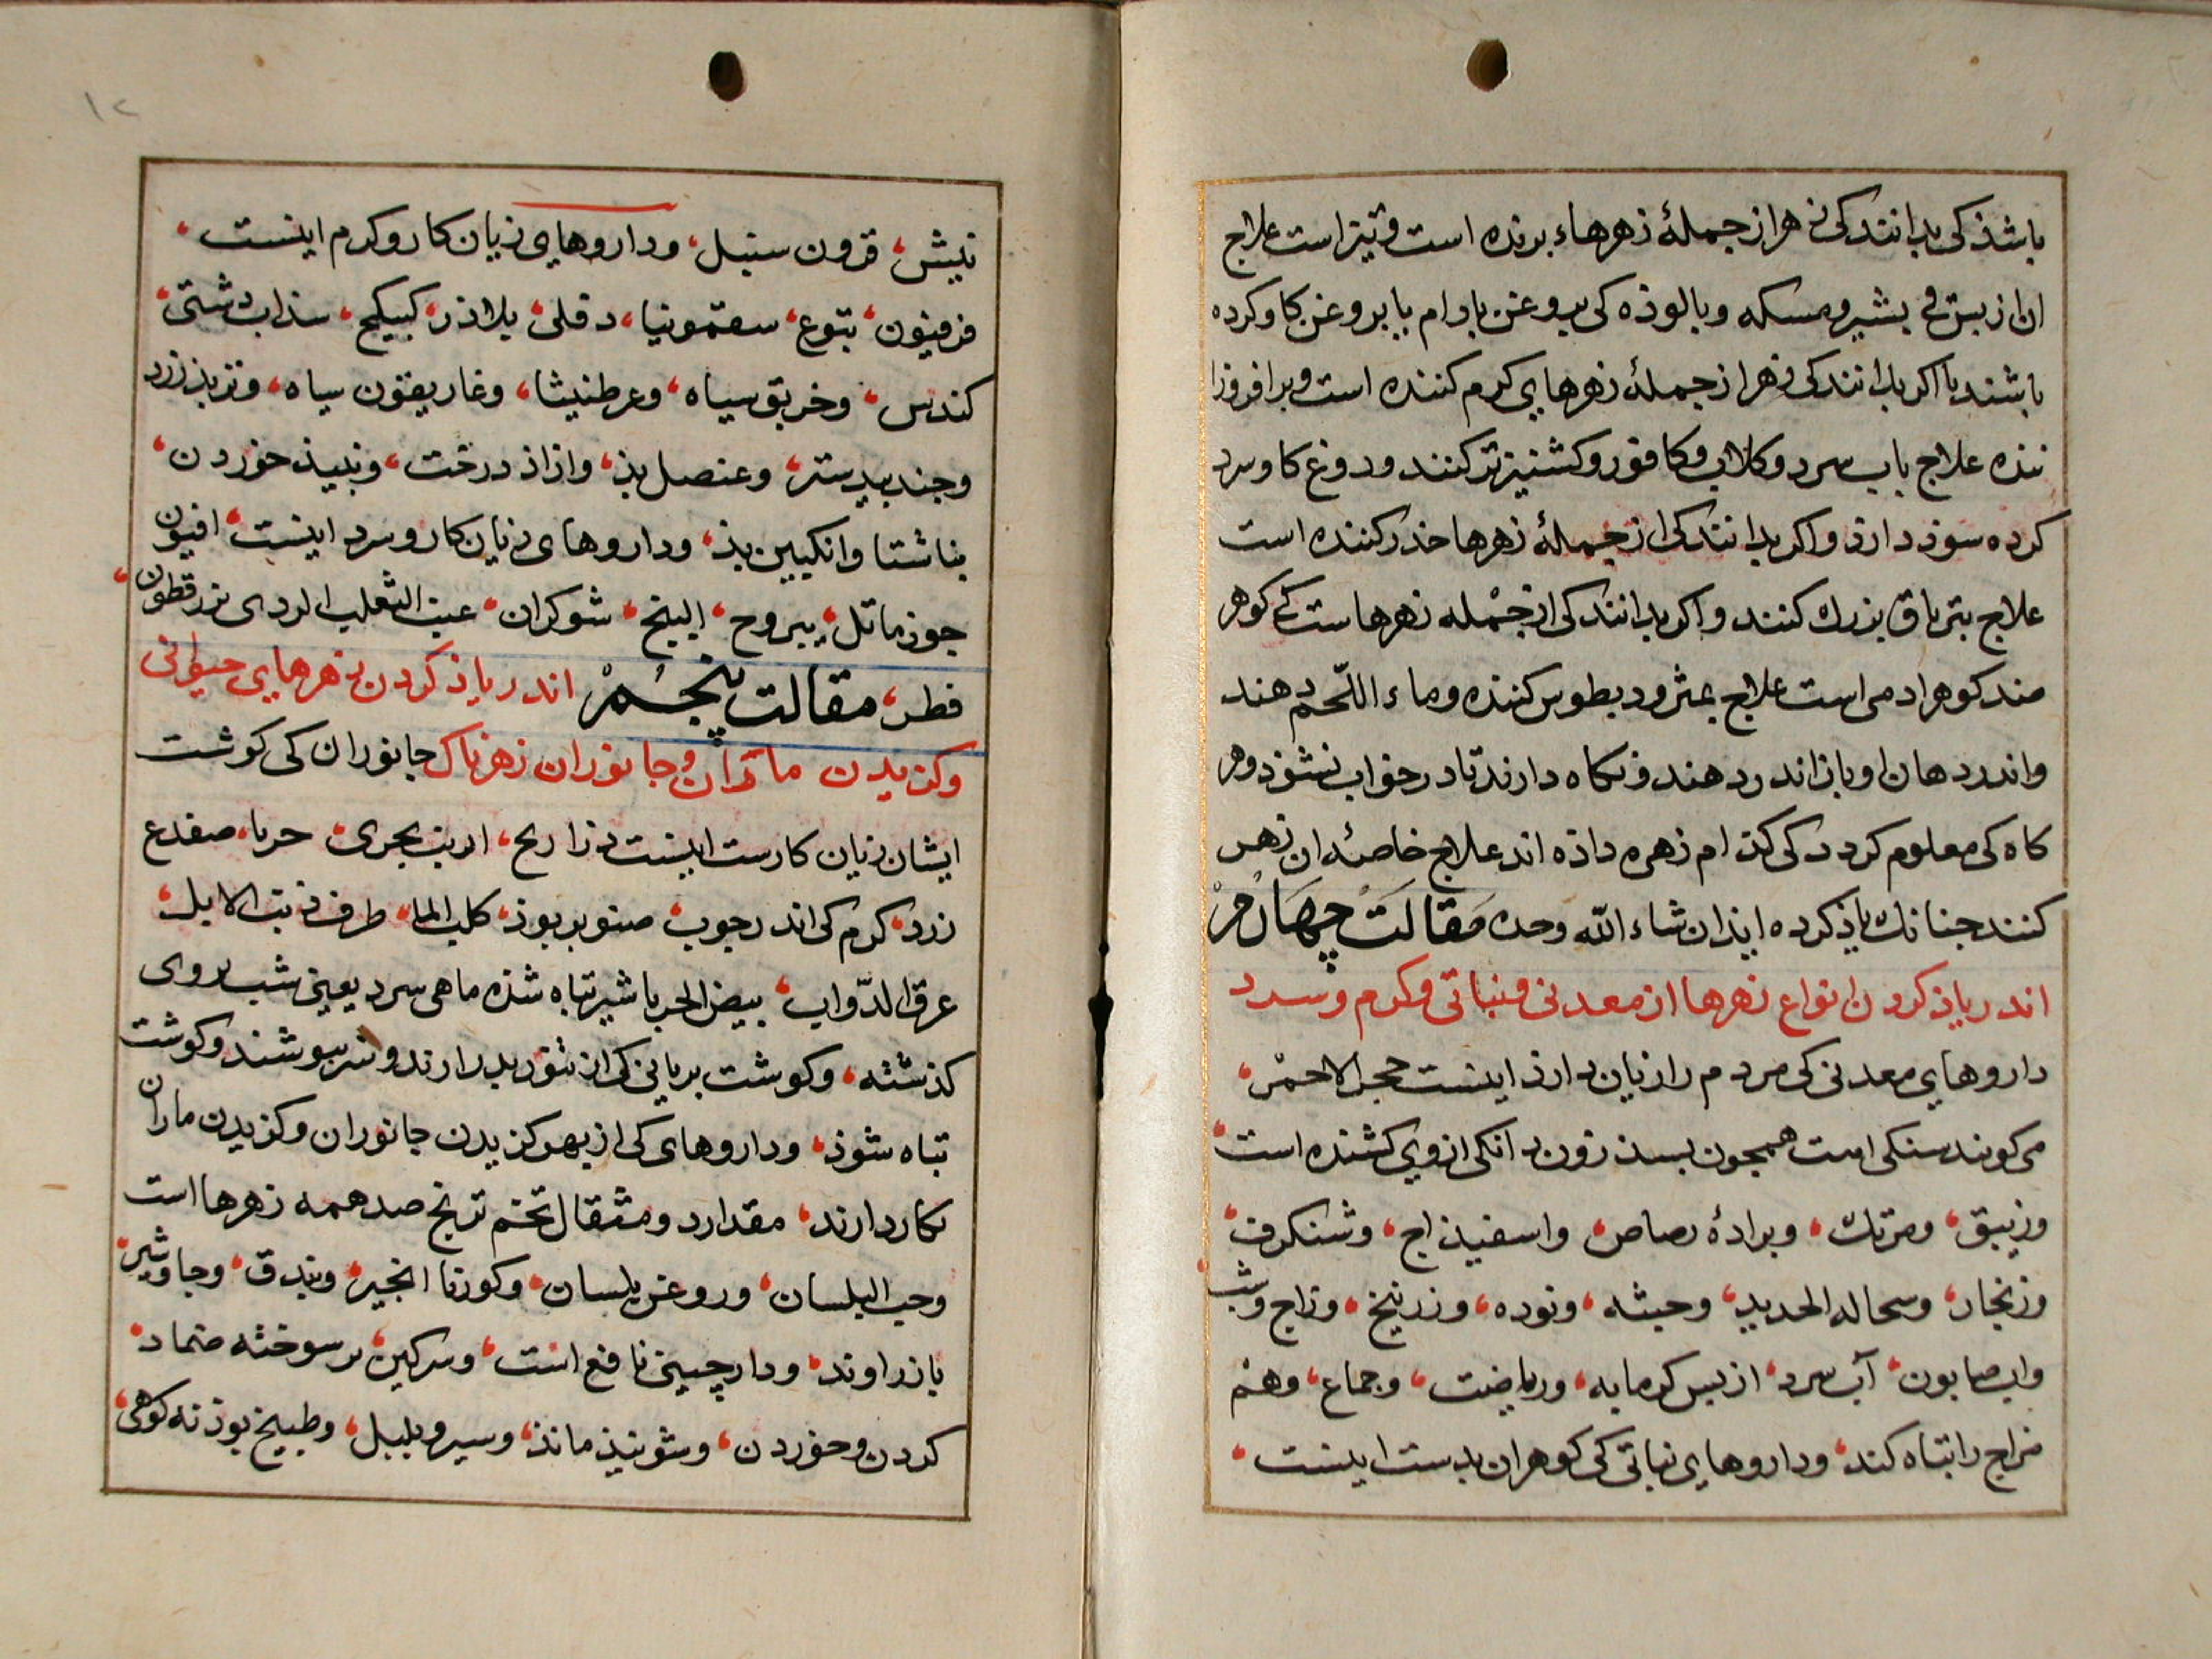 باشذ کی بدانند کی زهر از جملهٔ زهرهاء برنده است و تیز است علاج
ان از بس قی بشیر و مسکه و بالوذه کی بروغن بادام یا بروغن کاو کرده
باشند یا اکر بدانند کی زهر از جملهٔ زهرهای کرم کننده است و برافروزا
ننده علاج باب سرد و کلاب و کافور و کشنیز تر کنند و دوغ کاو سرد
کرده سوذ دارذ و اکر بدانند کی از جملهٔ زهرها خدر کننده است
علاج بتریاق بزرك کنند و اکر بدانند کی از جمله زهرهاست کی کوهر
ضد کوهر ادمی است علاج بمثرودیطوس کننده و ماء اللّحم دهند
و اندر دهان او باذ اندر دهند و نکاه دارند تا در خواب نشوذ و هر
کاه کی معلوم کردد کی کذام زهره داذه اند علاج خاصهٔ ان زهر
کنند جنانك یاذ کرده ایذ ان شاء الله وحده مقالت چهارم
اندر یاذ کردن انواع زهرها از معدنی و نباتی و کرم و سرد
داروهای معدنی کی مردم را زیان دارذ اینست حجر الاحمر،
می کویند سنکی است همجون بسذ زون دانکی از وی کشنده است،
و زیبق، و مرتك، و برادهٔ رصاص، و اسفیذاج، و شنکرف،
و زنجار، و سحاله الحدید، و خبثه، و نوره، و زرنیخ، و زاج و شب،
و اب صابون، آب سرد، از بس کرمابه، و ریاضت، و جماع، و هم
مزاج را تباه کند، و داروهای نباتی کی کوهر ان بدست اینست،
نیش، قرون سنبل، و داروهای زیان کار و کرم اینست،
فرفیون، یتوع، سقمونیا، دفلی، بلاذر، کبیکج، سذاب دشتی،
کندس، و خربق سیاه، و عرطنیثا، و غاریقون سیاه، و تربذ زرد
و جندبیدستر، و عنصل بذ، و ازاذ درخت، و نبیذ خوردن،
بناشتا و انکبین بذ، و داروهای زیان کار و سرد اینست، افیون
جوز ماثل، یبروح، البنج، شوکران، عنب الثعلب الردی بزرقطون،
فطر، مقالت پنجم اندر یاذ کردن زهرهای حیوانی
و کزیدن ماران و جانوران زهرناک جانوران کی کوشت
ایشان زیان کارست اینست ذراریح، ارنب بحری، حربا، ضفدع
زرد، کرم کی اندر جوب صنوبر بوذ، کلب الما، طرف ذنب الایل،
عرق الدّواب، بیض الحربا شیر تباه شذه ماهی سرد یعنی شب بروی
کذشته، و کوشت بریانی کی از تنور بدر ارند و سر ببوشند و کوشت
تباه شوذ، و داروهای کی از بهر کزیدن جانوران و کزیدن ماران
بکار دارند، مقدار دو مثقال تخم ترنج ضد همه زهرها است
و حب البلسان، و روغن بلسان، و کوزنا انجیر، و بندق، و جاوشیر،
با زراوند، و دارچینی نافع است، و سرکین بز سوخته ضماد،
کردن و خوردن، و شونیذ ماند، و سیر و بلبل، و طبیخ بوذنه کوهی،